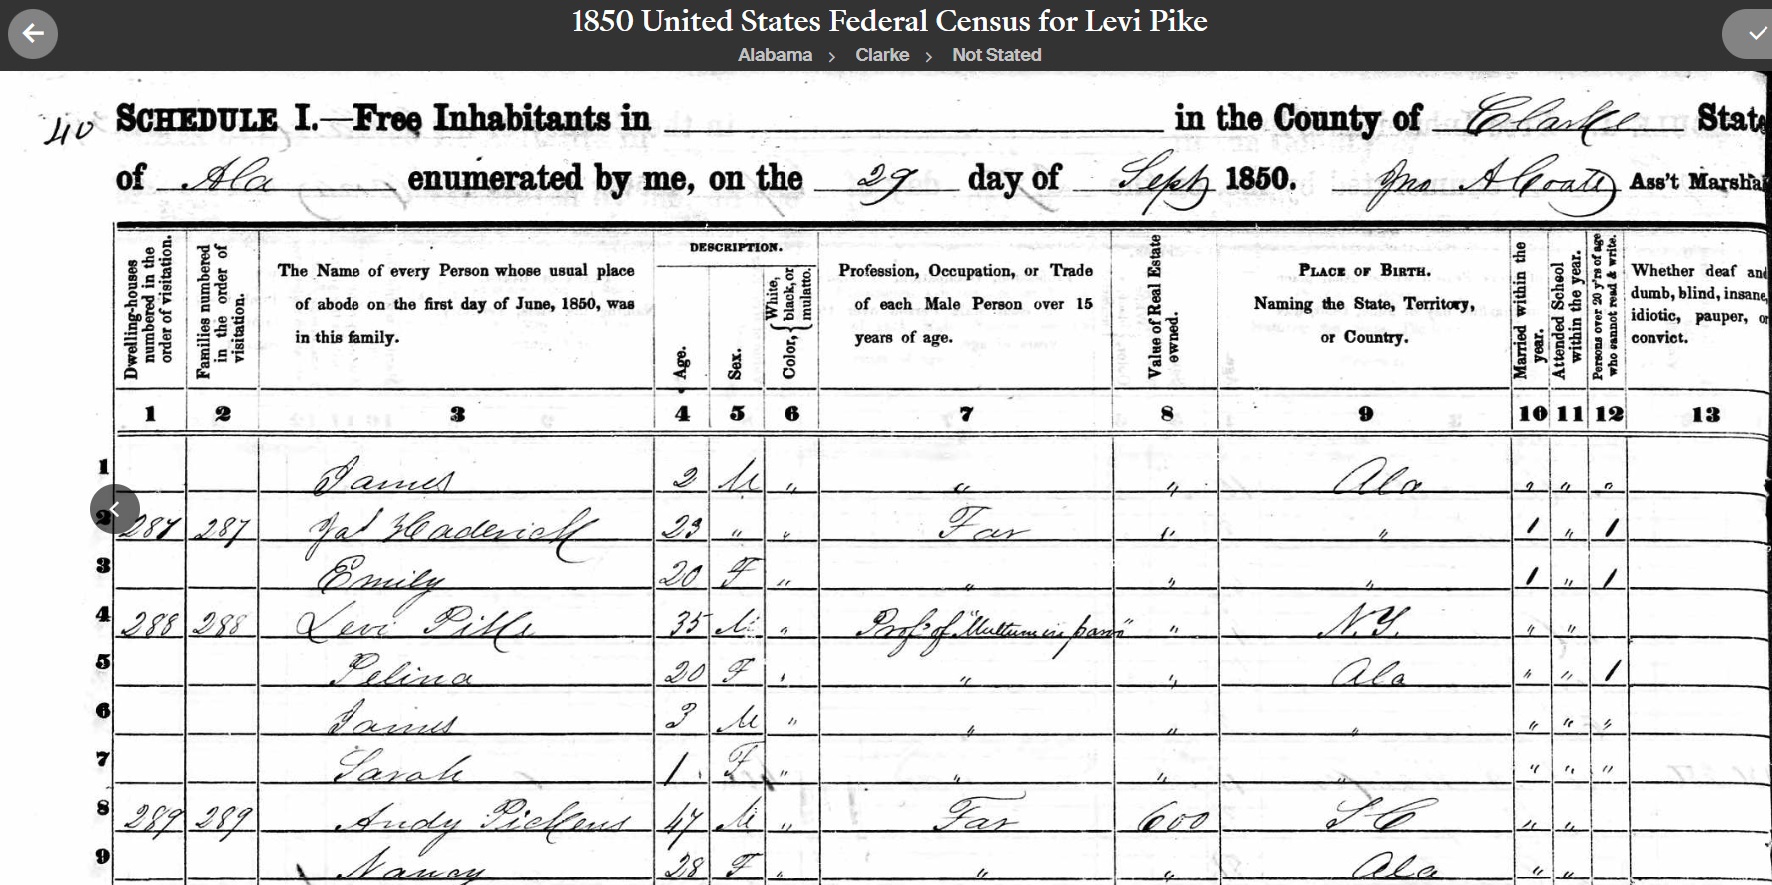 1850 United States Federal Census for Levi Pike
Alabama > Clarke > Not Stated
40 SCHEDULE I.—Free Inhabitants in in the County of Clarke State
of Ala enumerated by me, on the 29 day of Sept 1850. Jno A Coate Ass't Marshal
Dwelling-houses numbered in the order of visitation.
Families numbered in the order of visitation.
The Name of every Person whose usual place of abode on the first day of June, 1850, was in this family.
DESCRIPTION.
Age.
Sex.
Color, { White, black, or mulatto.
Profession, Occupation, or Trade of each Male Person over 15 years of age.
Value of Real Estate owned.
PLACE OF BIRTH. Naming the State, Territory, or Country.
Married within the year.
Attended School within the year.
Persons over 20 y'rs of age who cannot read & write.
Whether deaf and dumb, blind, insane, idiotic, pauper, or convict.
1 2 3 4 5 6 7 8 9 10 11 12 13
1 James 2 M " " " Ala " " "
2 287 287 Jas 23 " " Far " " 1 " 1
3 Emily 20 F " " " " 1 " 1
4 288 288 Levi Pike 35 M " Prof. of "Multum in parvo" " N.Y. " "
5 Pelina 20 F " " " Ala " " 1
6 James 3 M " " " " " " "
7 Sarah 1 F " " " " " " "
8 289 289 Andy Pickens 47 M " Far 600 S C " "
9 Nancy 28 F " " " Ala " "